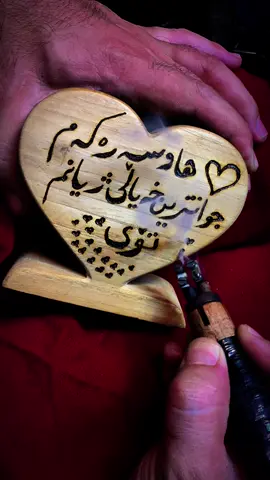 هاوسەرەکەم
جوانترین خەیاڵی ژیانم
تۆی